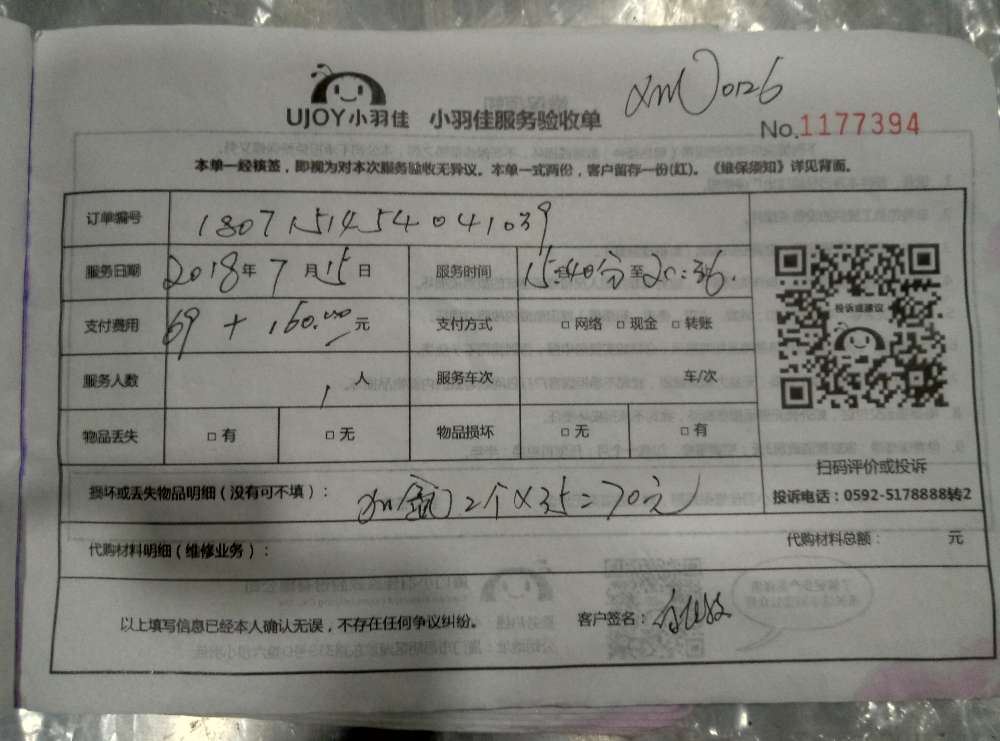 xm 0126
UJOY小羽佳 小羽佳服务验收单
No.1177394
本单一经核签，即视为对本次服务验收无异议。本单一式两份，客户留存一份(红)。《维保须知》详见背面。
订单编号 1807151454041039
服务日期 2018年7月15日 服务时间 15:40分至20:36.
支付费用 69+160.00元 支付方式 □网络 □现金 □转账
服务人数 1人 服务车次 车/次
物品丢失 □有 □无 物品损坏 □无 □有
投诉或建议
扫码评价或投诉
投诉电话：0592-5178888转2
损坏或丢失物品明细（没有可不填）： 加氟2个×35=70元
代购材料明细（维修业务）： 代购材料总额： 元
以上填写信息已经本人确认无误，不存在任何争议纠纷。 客户签名：